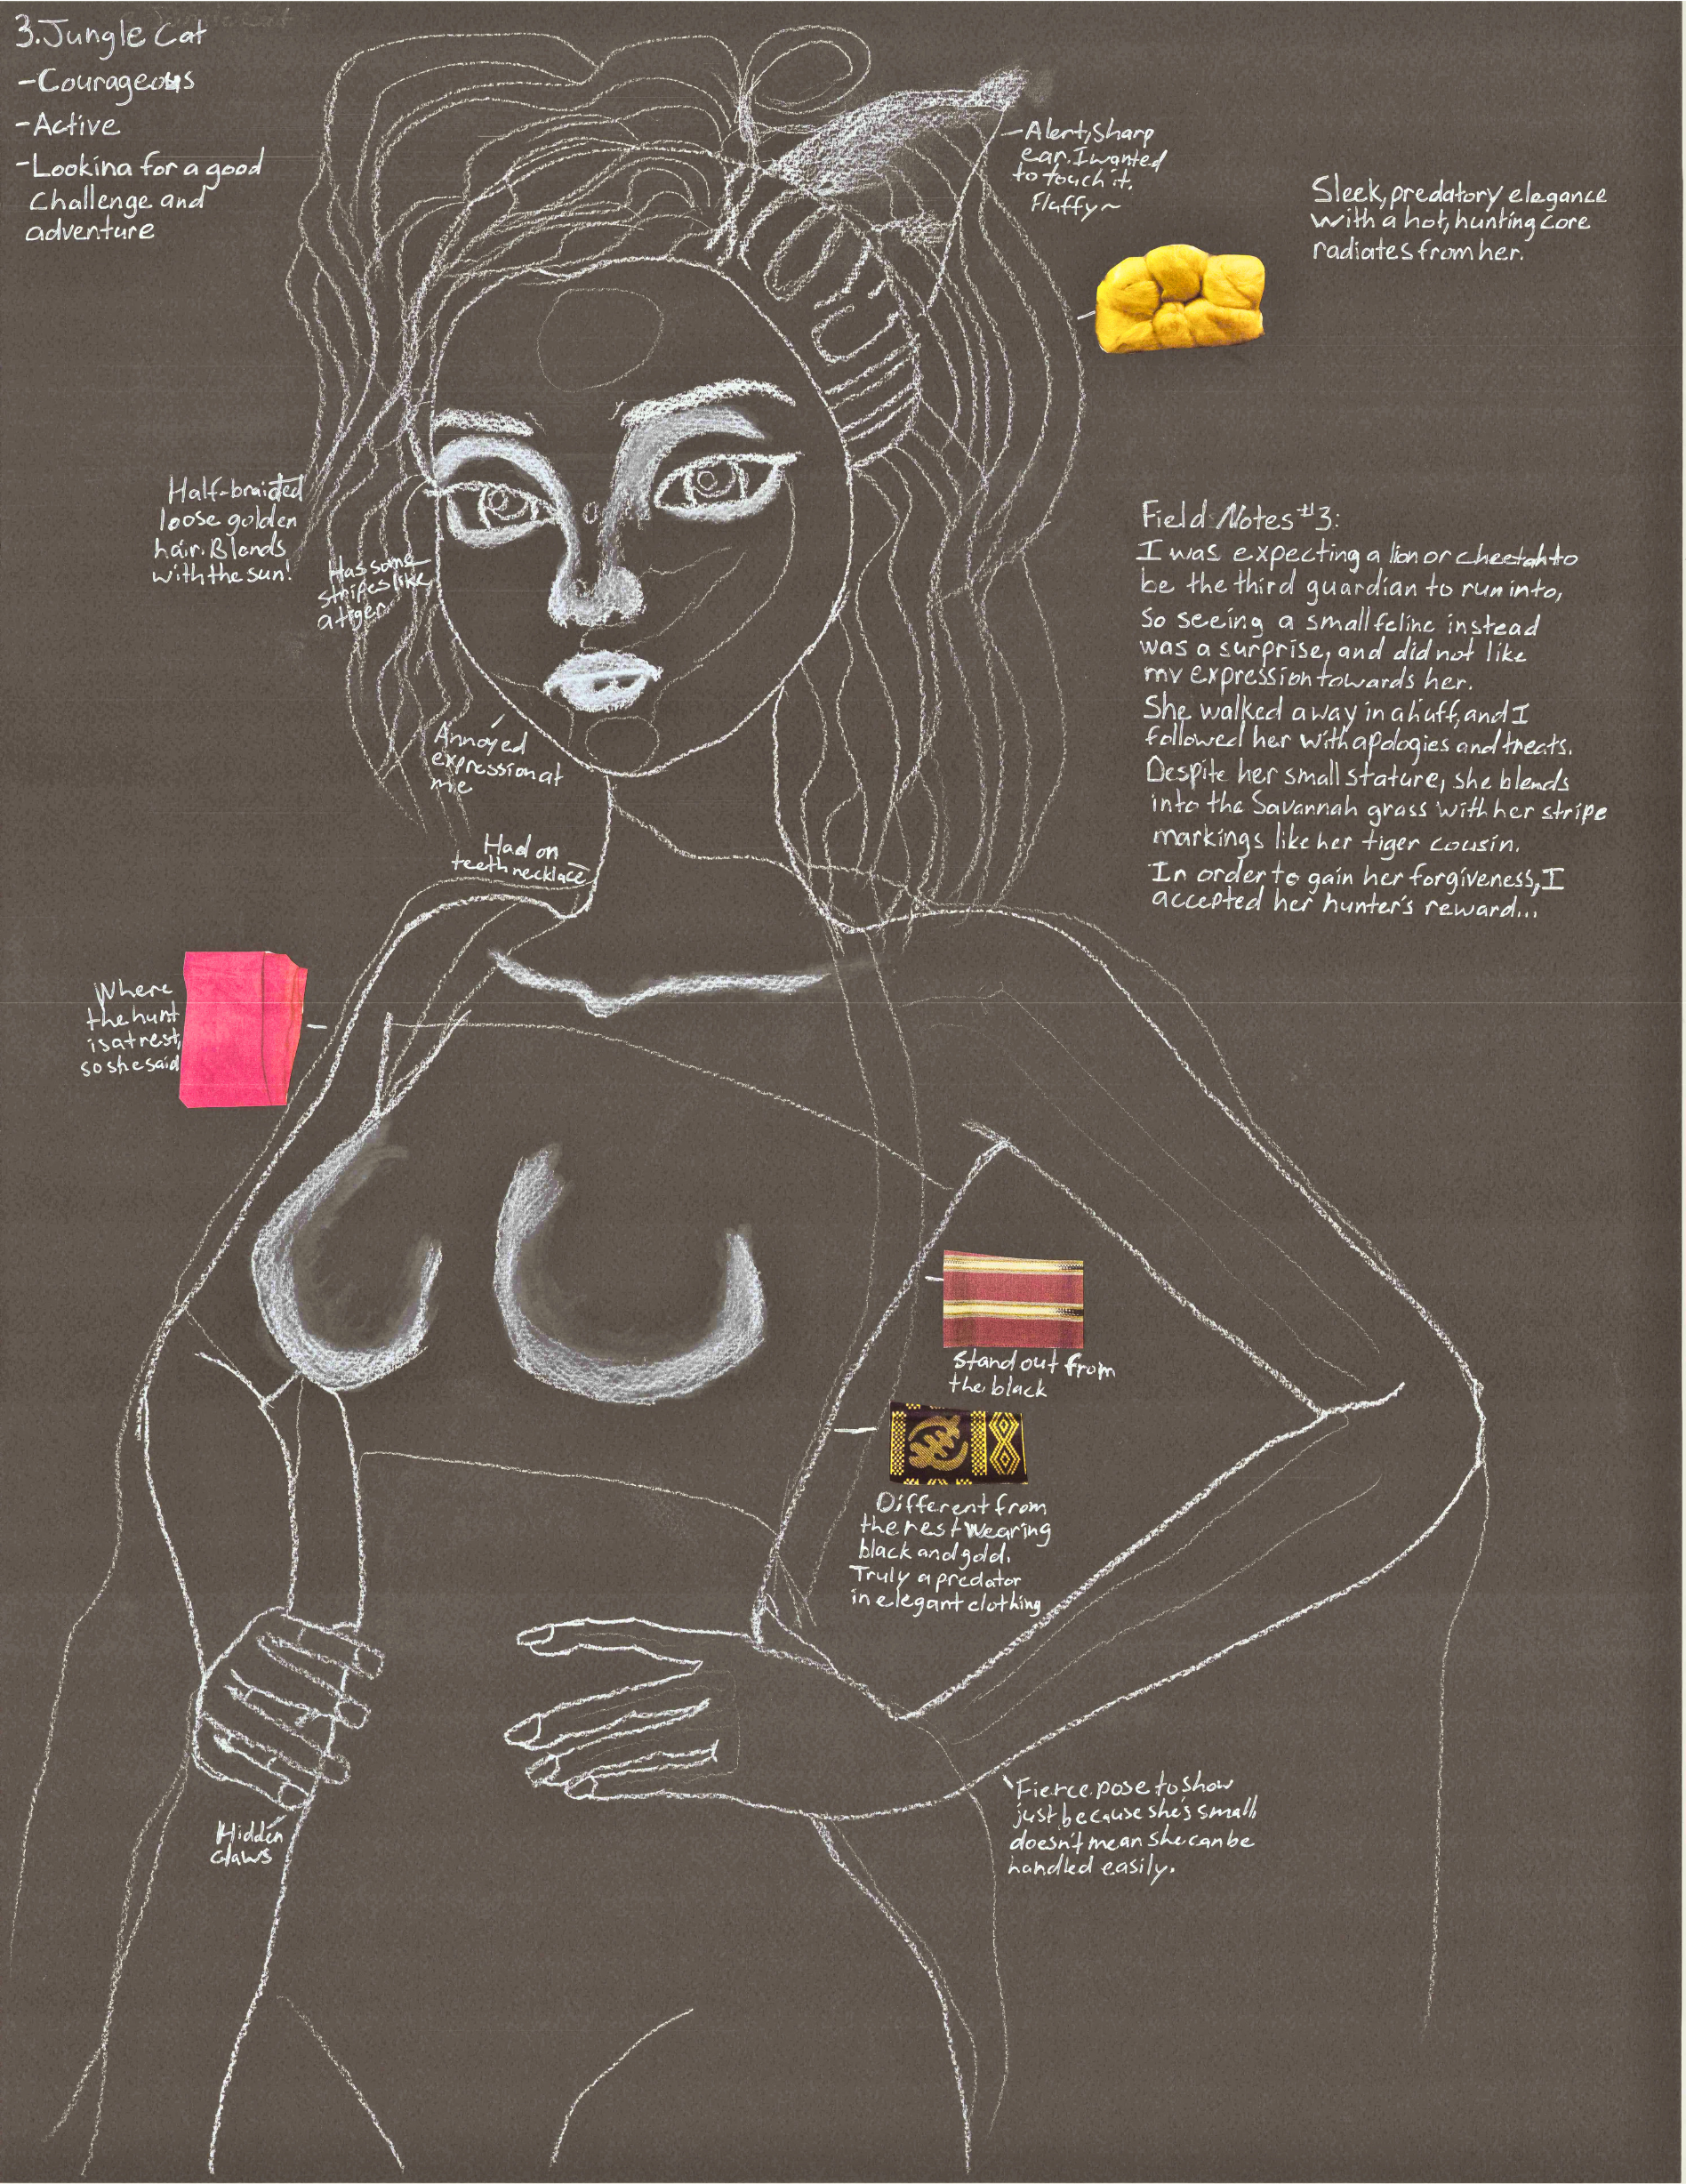 3. Jungle Cat
- Courageous
- Active
- Looking for a good
challenge and
adventure
- Alert, Sharp
ear. I wanted
to touch it.
Fluffy~
Sleek, predatory elegance
with a hot, hunting core
radiates from her.
Half-braided
loose golden
hair. Blends
with the sun!
Has some
stripes like
a tiger
Annoyed
expression at
me
Had on
teeth necklace
Field Notes #3:
I was expecting a lion or cheetah to
be the third guardian to run into,
so seeing a small feline instead
was a surprise, and did not like
my expression towards her.
She walked away in a huff, and I
followed her with apologies and treats.
Despite her small stature, she blends
into the Savannah grass with her stripe
markings like her tiger cousin.
In order to gain her forgiveness, I
accepted her hunter's reward...
Where
the hunt
is at rest,
so she said
Stand out from
the black
Different from
the rest wearing
black and gold.
Truly a predator
in elegant clothing
Hidden
claws
Fierce pose to show
just because she's small,
doesn't mean she can be
handled easily.